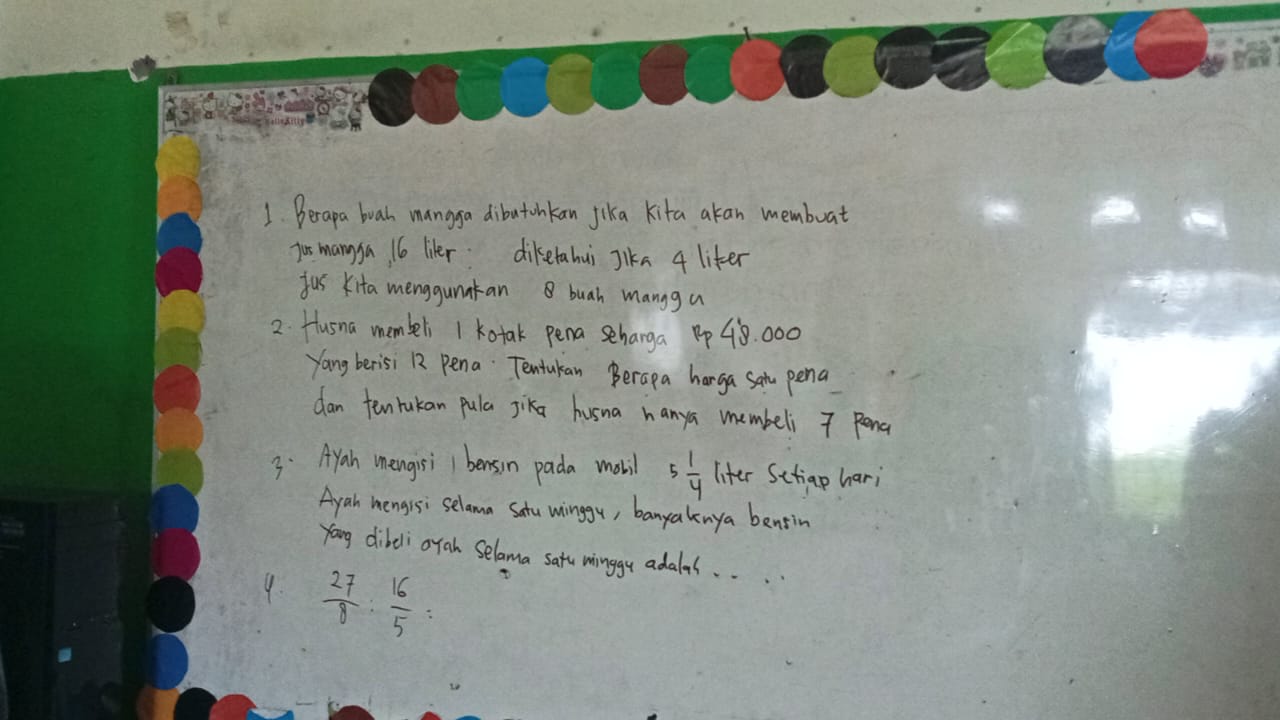 1. Berapa buah mangga dibutuhkan jika kita akan membuat
jus mangga 16 liter. diketahui jika 4 liter
jus kita menggunakan 8 buah mangga
2. Husna membeli 1 kotak pena seharga Rp 48.000
Yang berisi 12 pena. Tentukan Berapa harga satu pena
dan tentukan pula jika husna hanya membeli 7 pena
3. Ayah mengisi bensin pada mobil 5 1/4 liter setiap hari
Ayah mengisi selama satu minggu, banyaknya bensin
yang dibeli ayah selama satu minggu adalah . . . .
4. 27/8 : 16/5 :